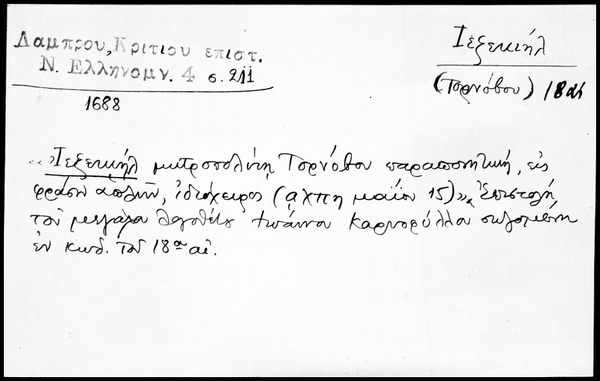 Λαμπρου, Κριτιου επιστ.
Ν. Ελληνομν. 4 σ. 211
1688
Ἰεζεκιήλ
(Τορνόβου) 18 αἰ
"Ἰεζεκιήλ μητροπολίτῃ Τορνόβου παραιτητική, εἰς
φράσιν ἁπλῆν, ἰδιόχειρος (αχπη μαΐου 15)". Ἐπιστολή
τοῦ μεγάλου λογοθέτου Ἰωάννου Καρυοφύλλου σωζομένη
ἐν κωδ. τοῦ 18ου αἰ.